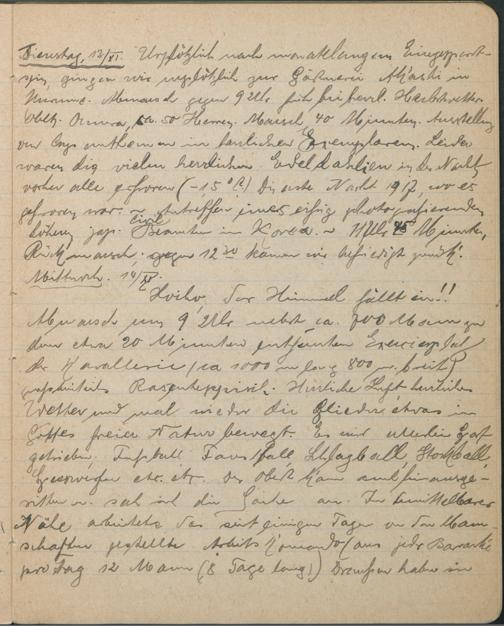 Dienstag, 13/XI. Urplötzlich nach monatelangem Eingesperrt-
sein, gingen wir urplötzlich zur Gärtnerei Akashi in
Kurume. Abmarsch gegen 9 Uhr früh
Oblt. ca. 50 Herren. Marsch 40 Minuten. Ausstellung
von in herrlichen Exemplaren. Leider
waren die vielen herrlichen Edeldahlien in der Nacht
vorher alle erfroren (-1,5°R) Die erste Nacht 1917, wo es
gefroren war. eifrig photographierenden
höhern jap. Beamten in Korea. 11 Uhr 45 Minuten
Rückmarsch, gegen 12 30 kamen wir befriedigt zurück.
Mittwoch. 14/XI.
Hoiho, der Himmel fällt ein!!
Abmarsch um 9 Uhr nebst ca. 700 Mann zu
dem etwa 20 Minuten entfernten Exerzierplatz
der Kavallerie, (ca 1000 m lang 800 m breit)
Rasenteppich. Herrliche Luft herrliches
Wetter und mal wieder die Glieder etwas in
Gottes freier Natur bewegt. Es wird allerlei Sport
getrieben. Fußball Faustball Schlagball, Stockball,
etc. etc. Der Oberst kam auch
und sah sich die Sache an. In unmittelbarer
Nähe arbeitete das seit einigen Tagen von den Mann-
schaften gestellte Arbeits Komando (aus jeder Baracke
pro Tag 12 Mann (8 Tage lang!) Draußen haben wir